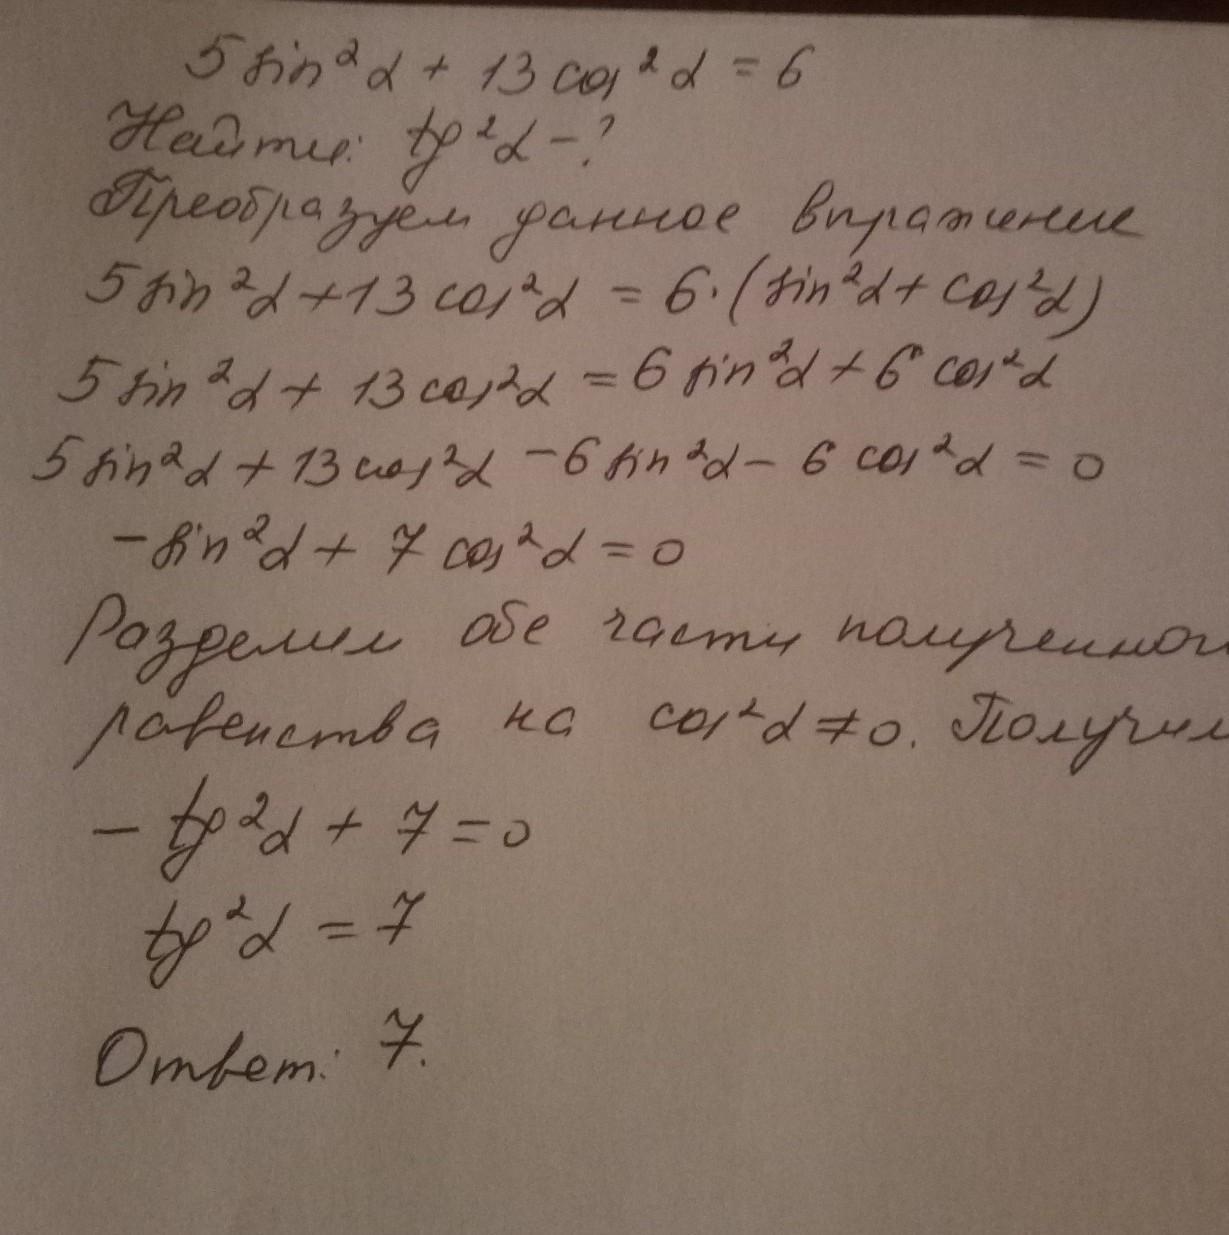 5 sin²α + 13 cos²α = 6
Найти: tg²α - ?
Преобразуем данное выражение
5 sin²α + 13 cos²α = 6·(sin²α + cos²α)
5 sin²α + 13 cos²α = 6 sin²α + 6 cos²α
5 sin²α + 13 cos²α - 6 sin²α - 6 cos²α = 0
- sin²α + 7 cos²α = 0
Разделим обе части полученного
равенства на cos²α ≠ 0. Получим
- tg²α + 7 = 0
tg²α = 7
Ответ: 7.